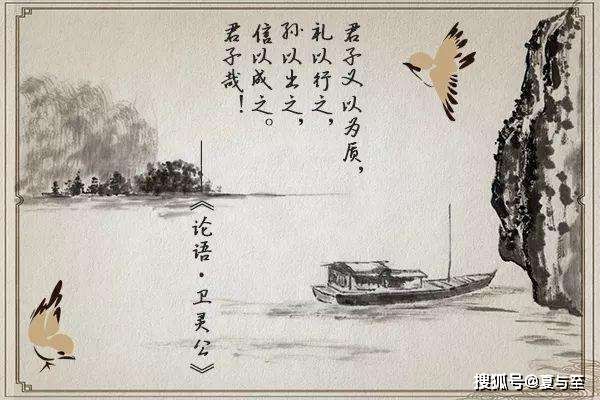 君子义以为质，
礼以行之，
孙以出之，
信以成之。
君子哉！
——《论语·卫灵公》
搜狐号@夏与至